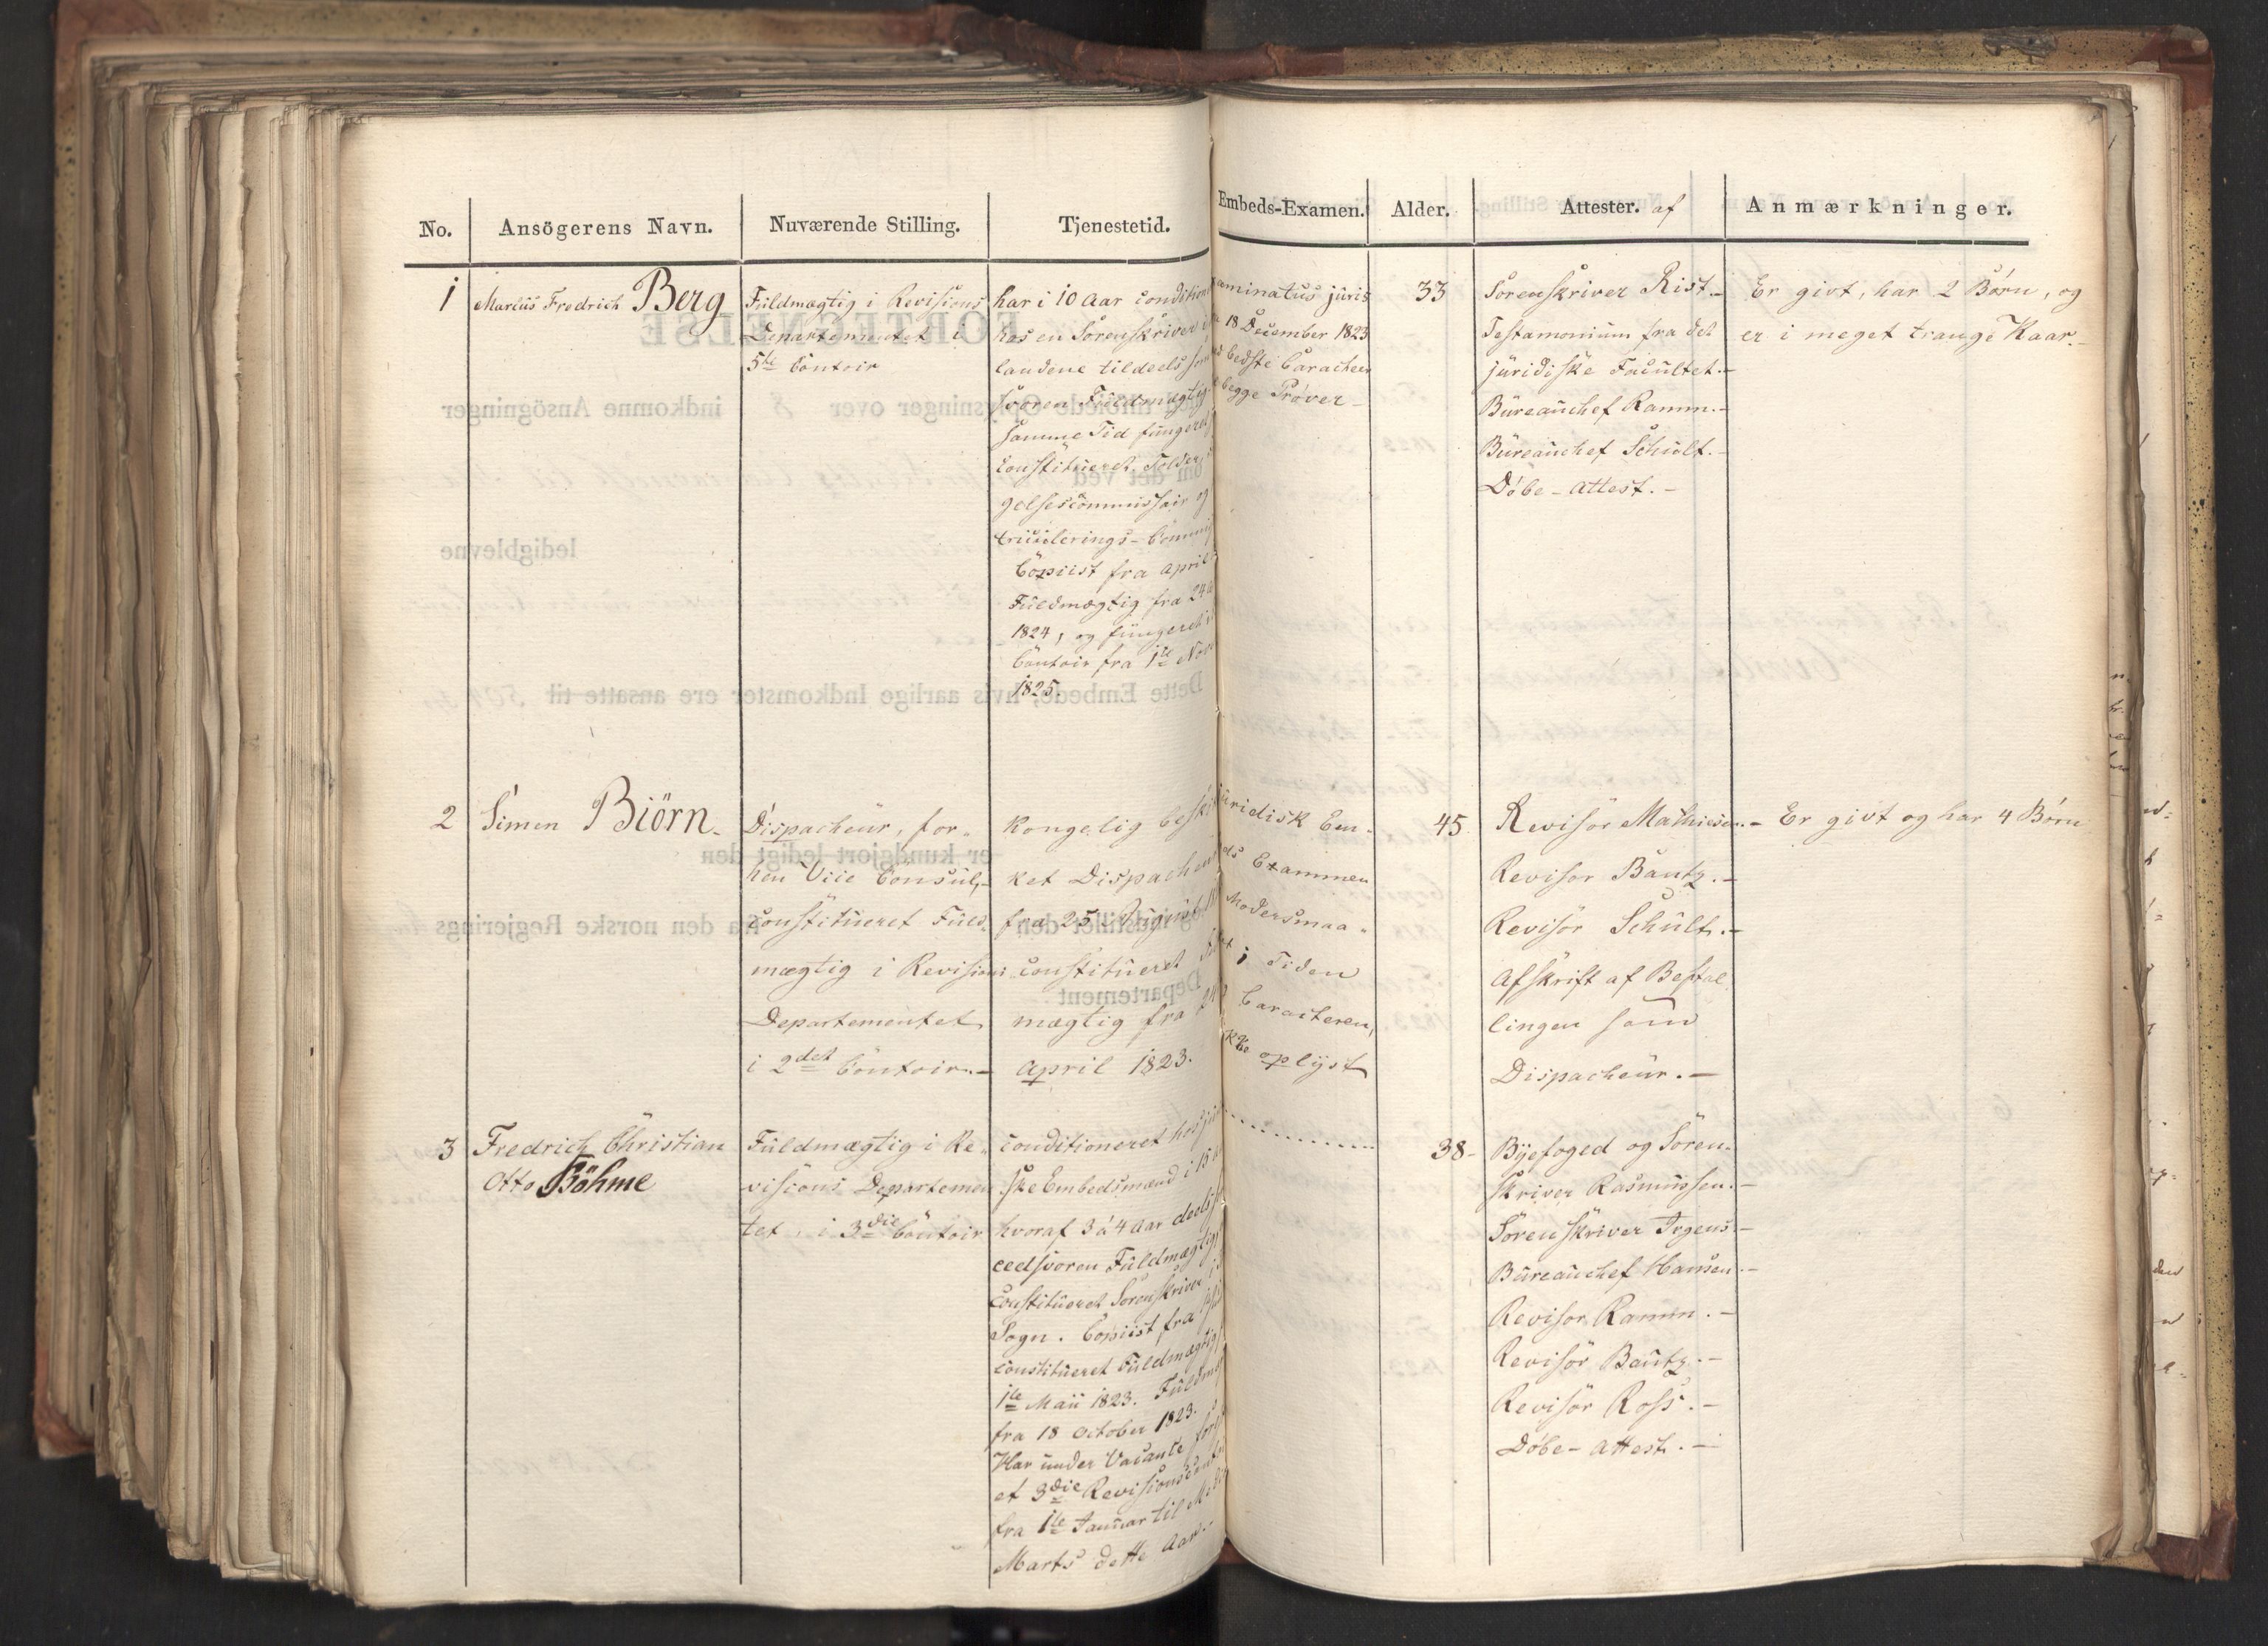 No.
Ansögerens Navn.
Nuværende Stilling.
Tjenestetid.
Embeds-Examen.
Alder.
Attester. af
Anmærkninger.
1
Marius Fredrich Berg
Fuldmægtig i Revisions
Departementet i
5te Contoir
har i 10 Aar condition
hos en Sorenskriver i
landene tildeels som
svoren Fuldmægtig
samme Tid fungeret
Constitueret Toldor
gelsescommissair og
triculerings-Commis
Copiist fra April
Fuldmægtig fra 24
1824, og fungeret i
Contoir fra 1te Nov
1825.
aminatus juris
18 December 1823
bedste Caracteer
begge Prøver
33
Sorenskriver Rist.
Testamonium fra det
juridiske Facultet.
Bureauchef Ramm.
Bureauchef Schult.
Döbe-Attest.
Er givt, har 2 Börn, og
er i meget trange Kaar.
2
Simen Biörn.
Dispacheur, for-
hen Vice Consul,
Constitueret Fuld-
mægtig i Revisions
Departementet
i 2det Contoir.
Kongelig besk
ket Dispacheur
fra 25 August
Constitueret
mægtig fra 24
April 1823.
juridisk Em-
ds Exammen
Modersmaa-
i Tiden
Caracteren,
kke oplyst
45
Revisor Mathiesen.
Revisor Bautz.
Revisor Schult.
Afskrift af Bestal
lingen som
Dispacheur.
Er givt og har 4 Börn
3
Fredrich Christian
Otto Böhme
Fuldmægtig i Re-
visions Departemen
tet, i 3die Contoir
conditioneret hos ju
ske Embedsmænd i 15
hvoraf 3 á 4 Aar deels
eedsvoren Fuldmægtig
Constitueret Sorenskriver i
Sogn. Copiist fra
constitueret Fuldmægtig
1te Maii 1823. Fuldmæ
fra 18 October 1823.
Har under Vacance
et 3die Revisionscont
fra 1te Januar til
Marts dette Aar.
38
Byefoged og Soren-
skriver Rasmussen.
Sorenskriver Irgens.
Bureauchef Hansen.
Revisor Ramm.
Revisor Bautz.
Revisor Ross.
Döbe-Attest.